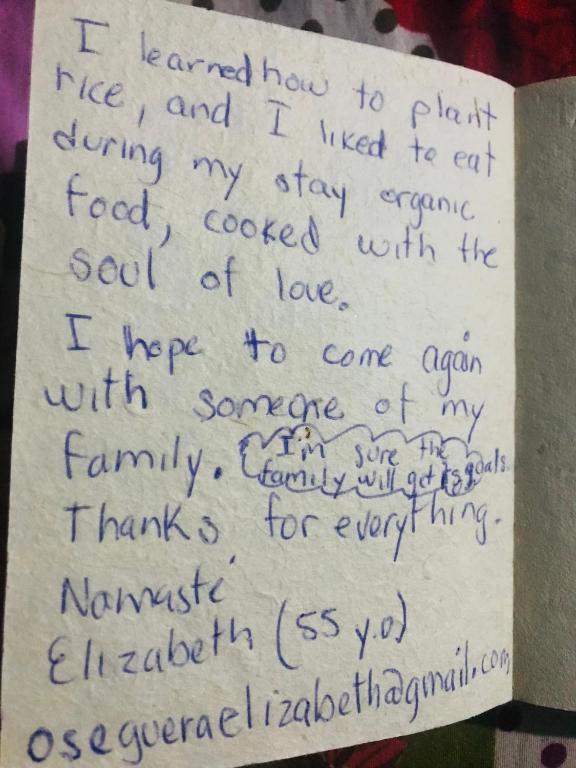 I learned how to plant
rice, and I liked to eat
during my stay organic
food, cooked with the
soul of love.
I hope to come again
with someone of my
family. I'm sure the
family will get its goals.
Thanks for everything.
Namasté
Elizabeth (55 y.o)
osegueraelizabeth@gmail.com